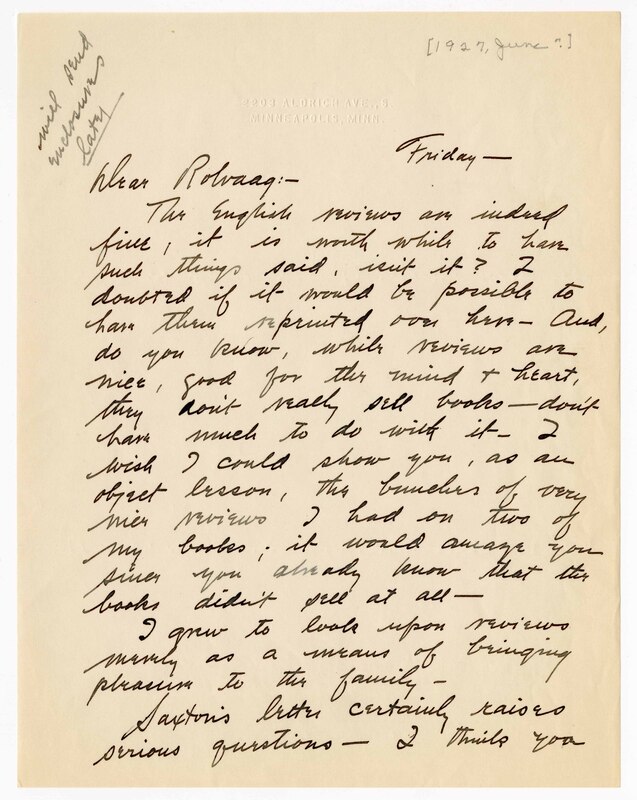 [1927, June ?]
will send
enclosures
later
2203 ALDRICH AVE., S.
MINNEAPOLIS, MINN.
Friday—
Dear Rolvaag:—
The English reviews are indeed
fine, it is worth while to have
such things said, isn't it? I
doubted if it would be possible to
have them reprinted over here— And,
do you know, while reviews are
nice, good for the mind + heart,
they don't really sell books—don't
have much to do with it— I
wish I could show you, as an
object lesson, the bunches of very
nice reviews I had on two of
my books; it would amaze you
since you already know that the
books didn't sell at all—
I grew to look upon reviews
merely as a means of bringing
pleasure to the family—
Saxton's letter certainly raises
serious questions— I think you